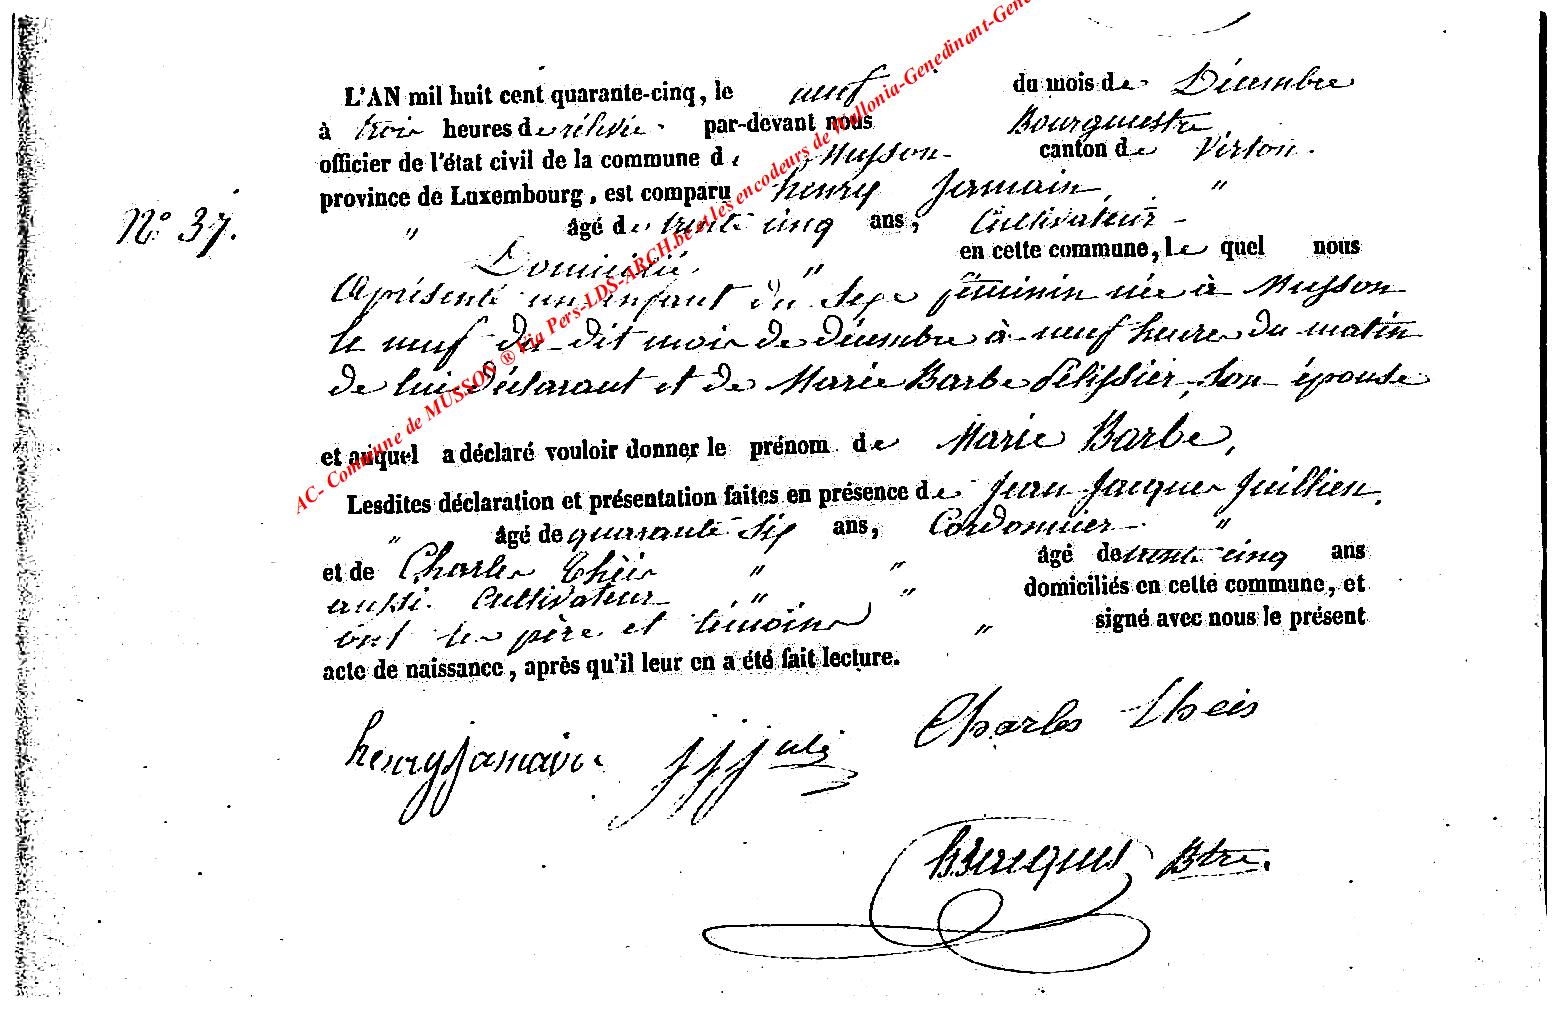 L'AN mil huit cent quarante-cinq, le neuf du mois de Décembre
à trois heures de rélévée. par-devant nous Bourgmestre
officier de l'état civil de la commune de Musson canton de Virton.
province de Luxembourg, est comparu henry Jamain, "
N° 37.
" âgé de trente cinq ans, Cultivateur
Domicilié " en cette commune, le quel nous
a présenté un enfant du sexe féminin née à Musson
le neuf du dit mois de décembre à neuf heures du matin
de lui déclarant et de Marie Barbe Pélissier, son épouse
et auquel a déclaré vouloir donner le prénom de Marie Barbe,
Lesdites déclaration et présentation faites en présence de Jean Jacques Juillien,
" âgé de quarante six ans, Cordonnier "
et de Charles Théis " " âgé de trente cinq ans
aussi Cultivateur " " domiciliés en cette commune, et
ont les père et témoins " signé avec nous le présent
acte de naissance, après qu'il leur en a été fait lecture.
henry jamain JJ Charles theis
Btre.
AC- Commune de MUSSON ® Via Pers-LDS-ARCH.be et les encodeurs de Wallonia-Genedinant-Gene